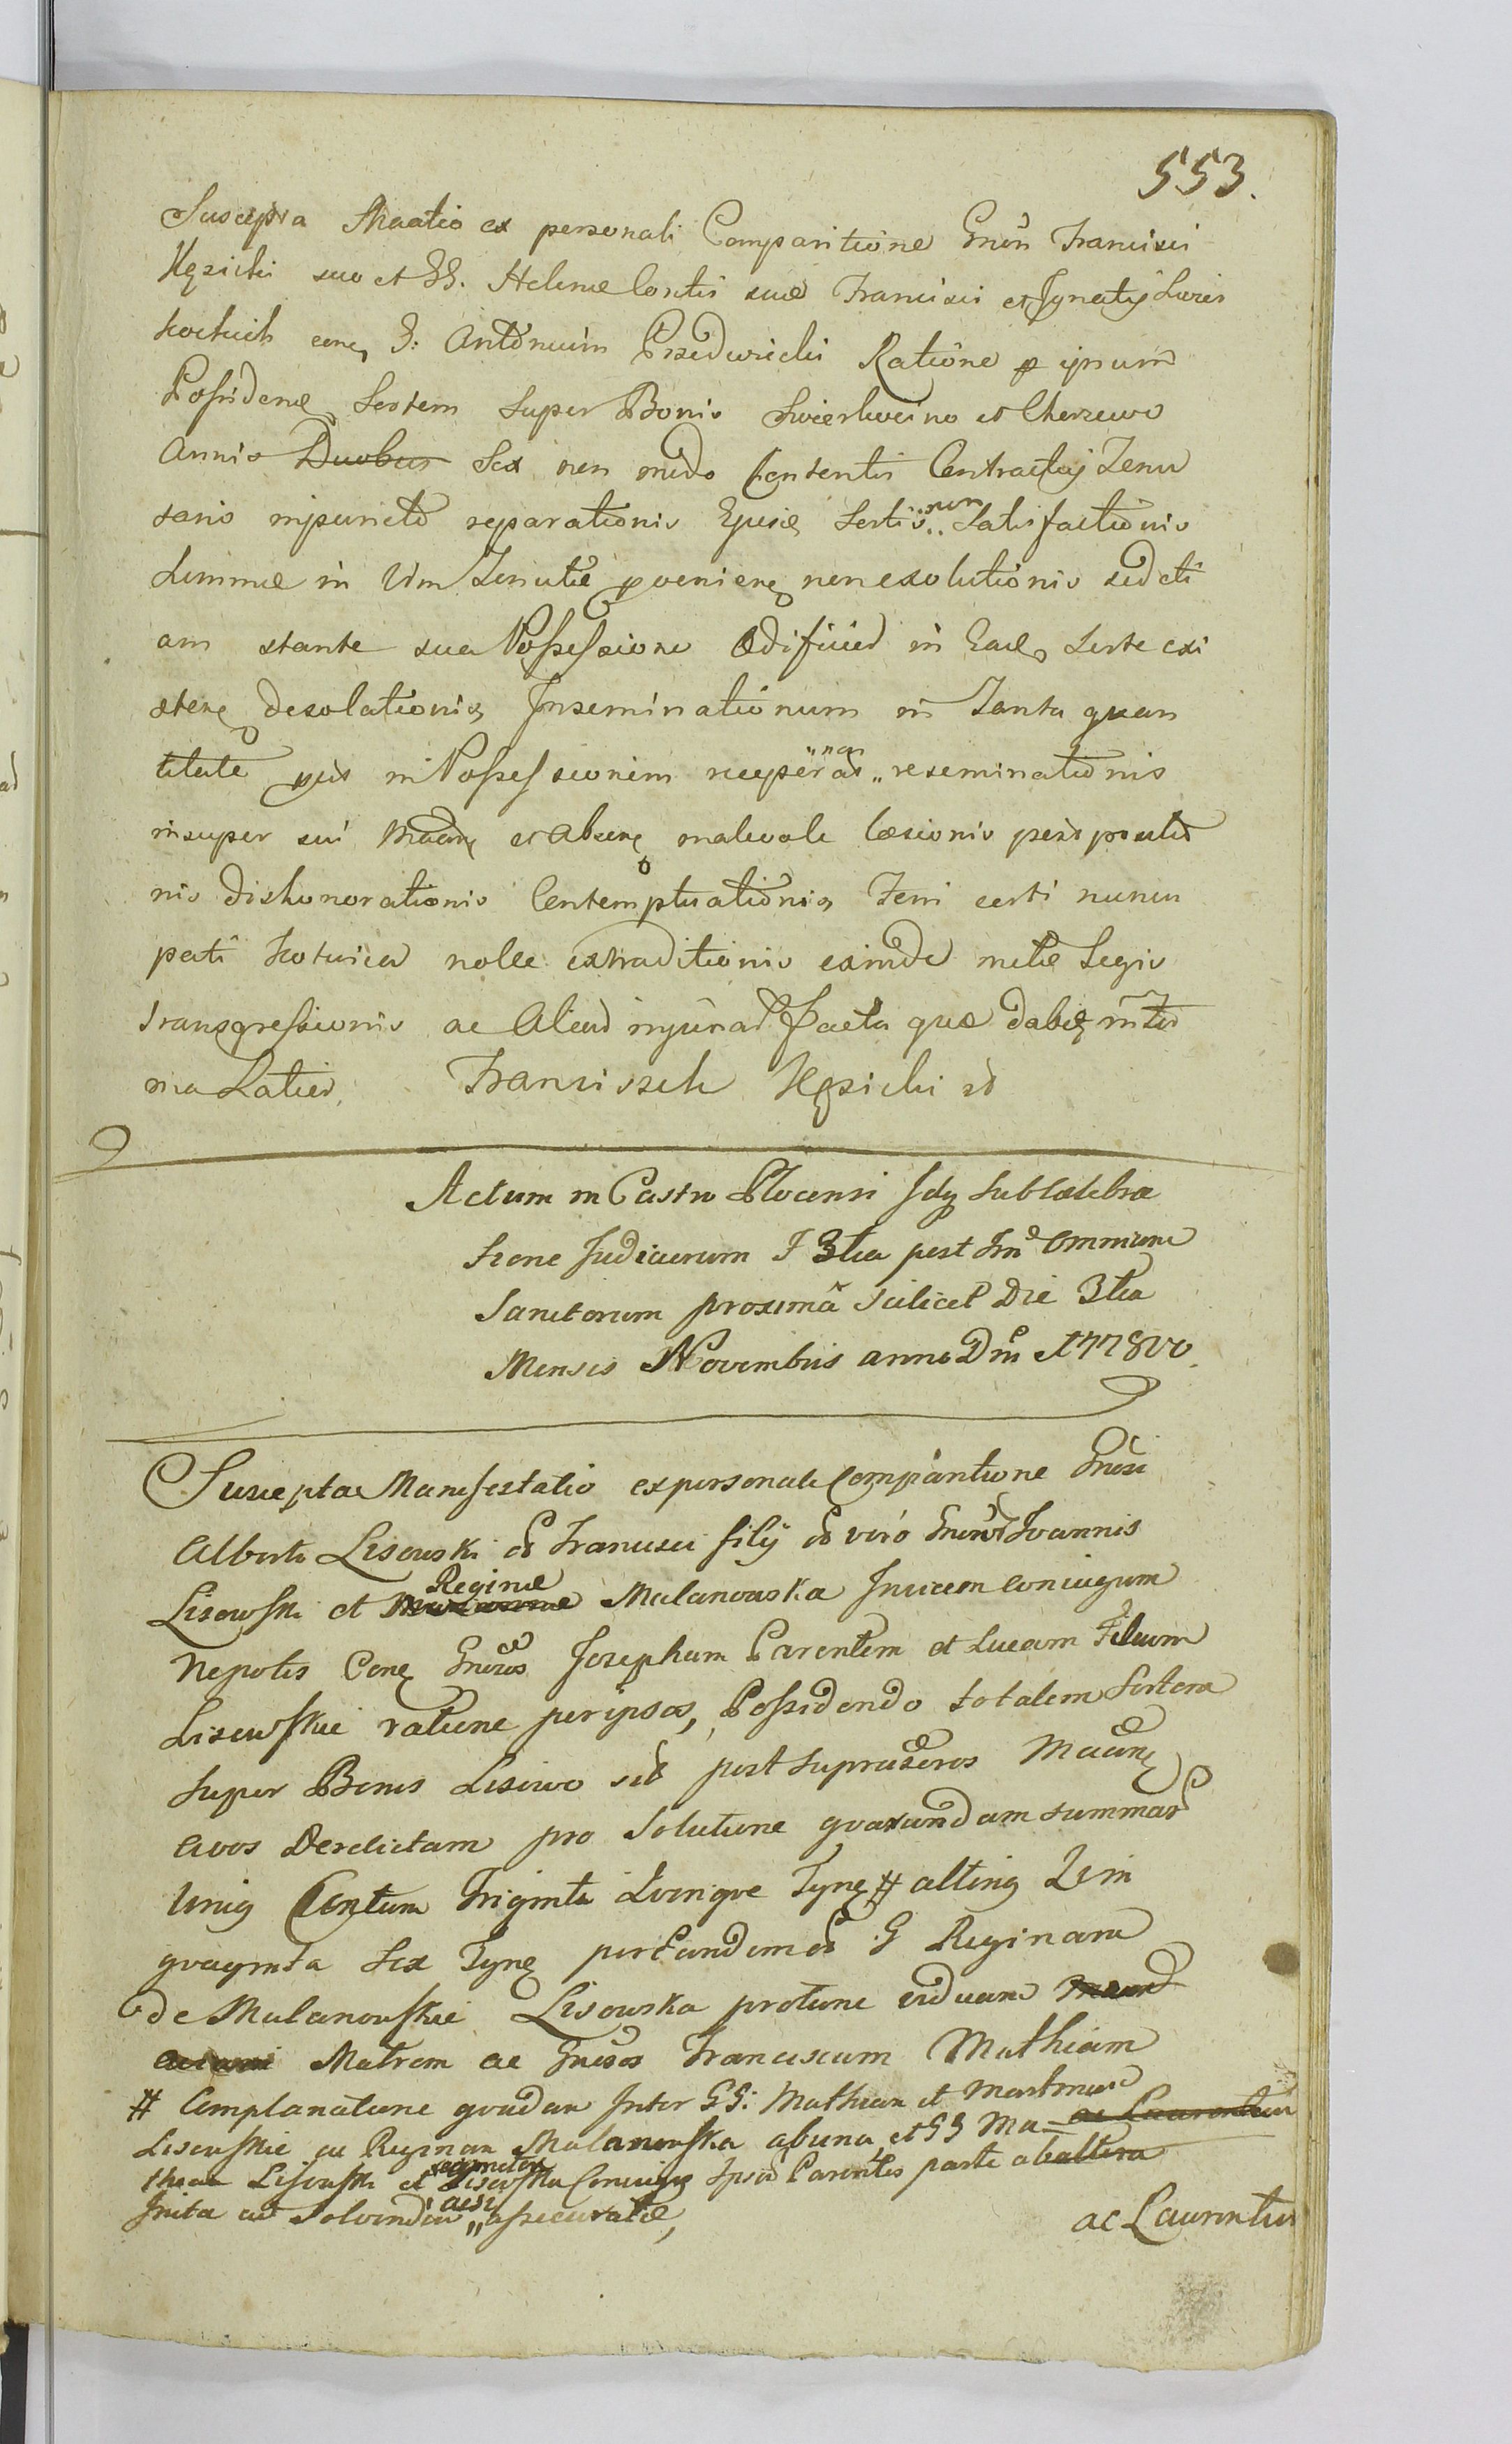 553.
Suscepta Mnatio ex personali Comparitione Gnẽn Francisci
Kęsicki suo et GG. Helenæ Contis suæ Francisci et Ignatij Luzis
kockich conq G: Antonium Przedwiecki Ratione p ipsum
Possidenę Sortem Super Bonis Swierkocino et Chorzewo
Annis Duobus Sex non modo Contentis Contractuj Tenu
tario inpuncto reparationis Ejusq Sortis „non„ Satisfactionis
Summæ in Vim Tenutæ pvenienę non exolutionis sed eti
am stante sua Possessione Ædificiorũ in Eadẽ Sorte exi
stenę desolationis Inseminationum in Tanta quan
titate in Possessionem receperat „non„ reseminationis
insuper sui Mãnę et Absenę malevole læsionis
nis dishonorationis Contemptuationis Ferri certi nuncu
pati kotwica nolle extraditionis exinde metæ Legis
transgressionis ac Aliud injuriad Facta quæ dabit inter
ma Latius. Franciszek Kęsicki
Actum in Castro Plocensi Idq sub celebra
tione Judiciorum F 3tia post Fm̃ Omnium
Sanctorum proxima scilicet Die 3tia
Mensis Novembris anno Dni 1778vo.
Suscepta Manifestatio ex personali Comparitione Gnosi
Alberti Lisowski od Francisci filij od viro Gnen Joannis
Lisowski et Marianne Reginæ Malanowska Invicem Coniugum
Nepotis Conę Gnosos Josephum Parentem et Lucam Filium
Lisowskie ratione per ipsos, Possidendo totalem Sortem
super Bonis Lisiewo sed post supra Gnosos Mãnę
avos Derelictam pro Solutione quarundam summar
Unius Centum Triginta Quinque Tynę # alting Quin
quaginta Sex Tynę per Eandem od G Reginam
de Malanowskie Lisowska protunc viduam
Matrem ac Gnosos Franciscum Mathiam
# Complanatione quadam Inter GG: Mathiam et Martinum
Lisowskie ac Reginam Malanowska ab una et GG Ma ac Laurentium
thiam Lisowski et Lisowska Coniuges Ipsos Parentes parte ab altera
Inita ad Solvendum „ „ assecuratæ,
ac Laurentium